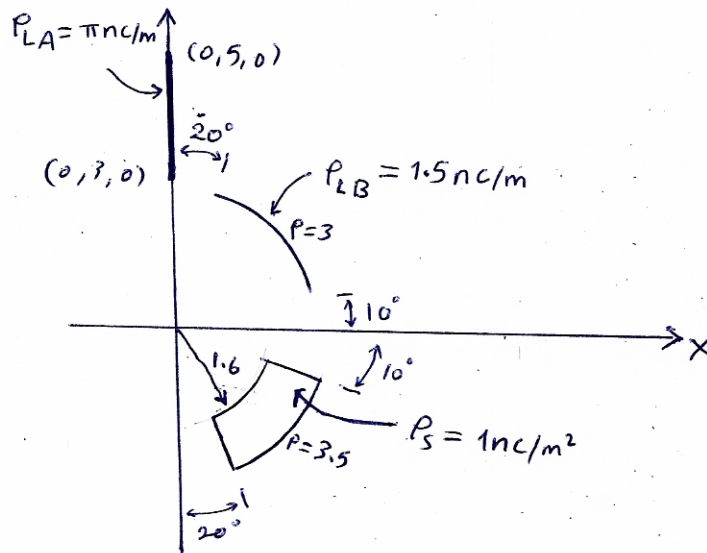 ρLA = π nc/m
(0,5,0)
20°
(0,3,0)
ρLB = 1.5 nc/m
ρ=3
10°
X
1.6
10°
ρs = 1nc/m²
ρ=3.5
20°